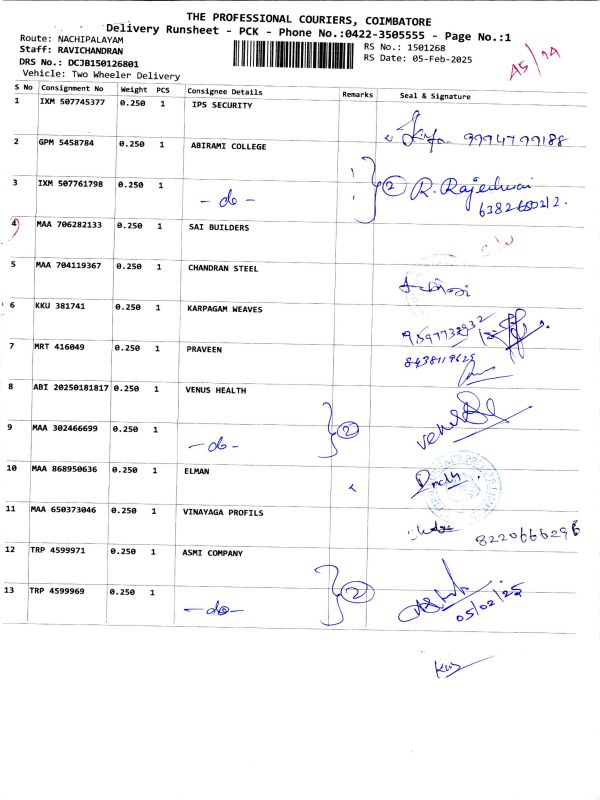 THE PROFESSIONAL COURIERS, COIMBATORE
Delivery Runsheet - PCK - Phone No.:0422-3505555 - Page No.:1
Route: NACHIPALAYAM RS No.: 1501268
Staff: RAVICHANDRAN RS Date: 05-Feb-2025
DRS No.: DCJB150126801
Vehicle: Two Wheeler Delivery
A5/14
S No Consignment No Weight PCS Consignee Details Remarks Seal & Signature
1 IXM 507745377 0.250 1 IPS SECURITY
2 GPM 5458784 0.250 1 ABIRAMI COLLEGE
3 IXM 507761798 0.250 1 - do - 2 R. Rajeshwari
4 MAA 706282133 0.250 1 SAI BUILDERS
5 MAA 704119367 0.250 1 CHANDRAN STEEL
6 KKU 381741 0.250 1 KARPAGAM WEAVES
7 MRT 416049 0.250 1 PRAVEEN 8438119625
8 ABI 20250181817 0.250 1 VENUS HEALTH
9 MAA 302466699 0.250 1 - do - 2
10 MAA 868950636 0.250 1 ELMAN
11 MAA 650373046 0.250 1 VINAYAGA PROFILS 8220666296
12 TRP 4599971 0.250 1 ASMI COMPANY
13 TRP 4599969 0.250 1 - do - 2 05/02/25